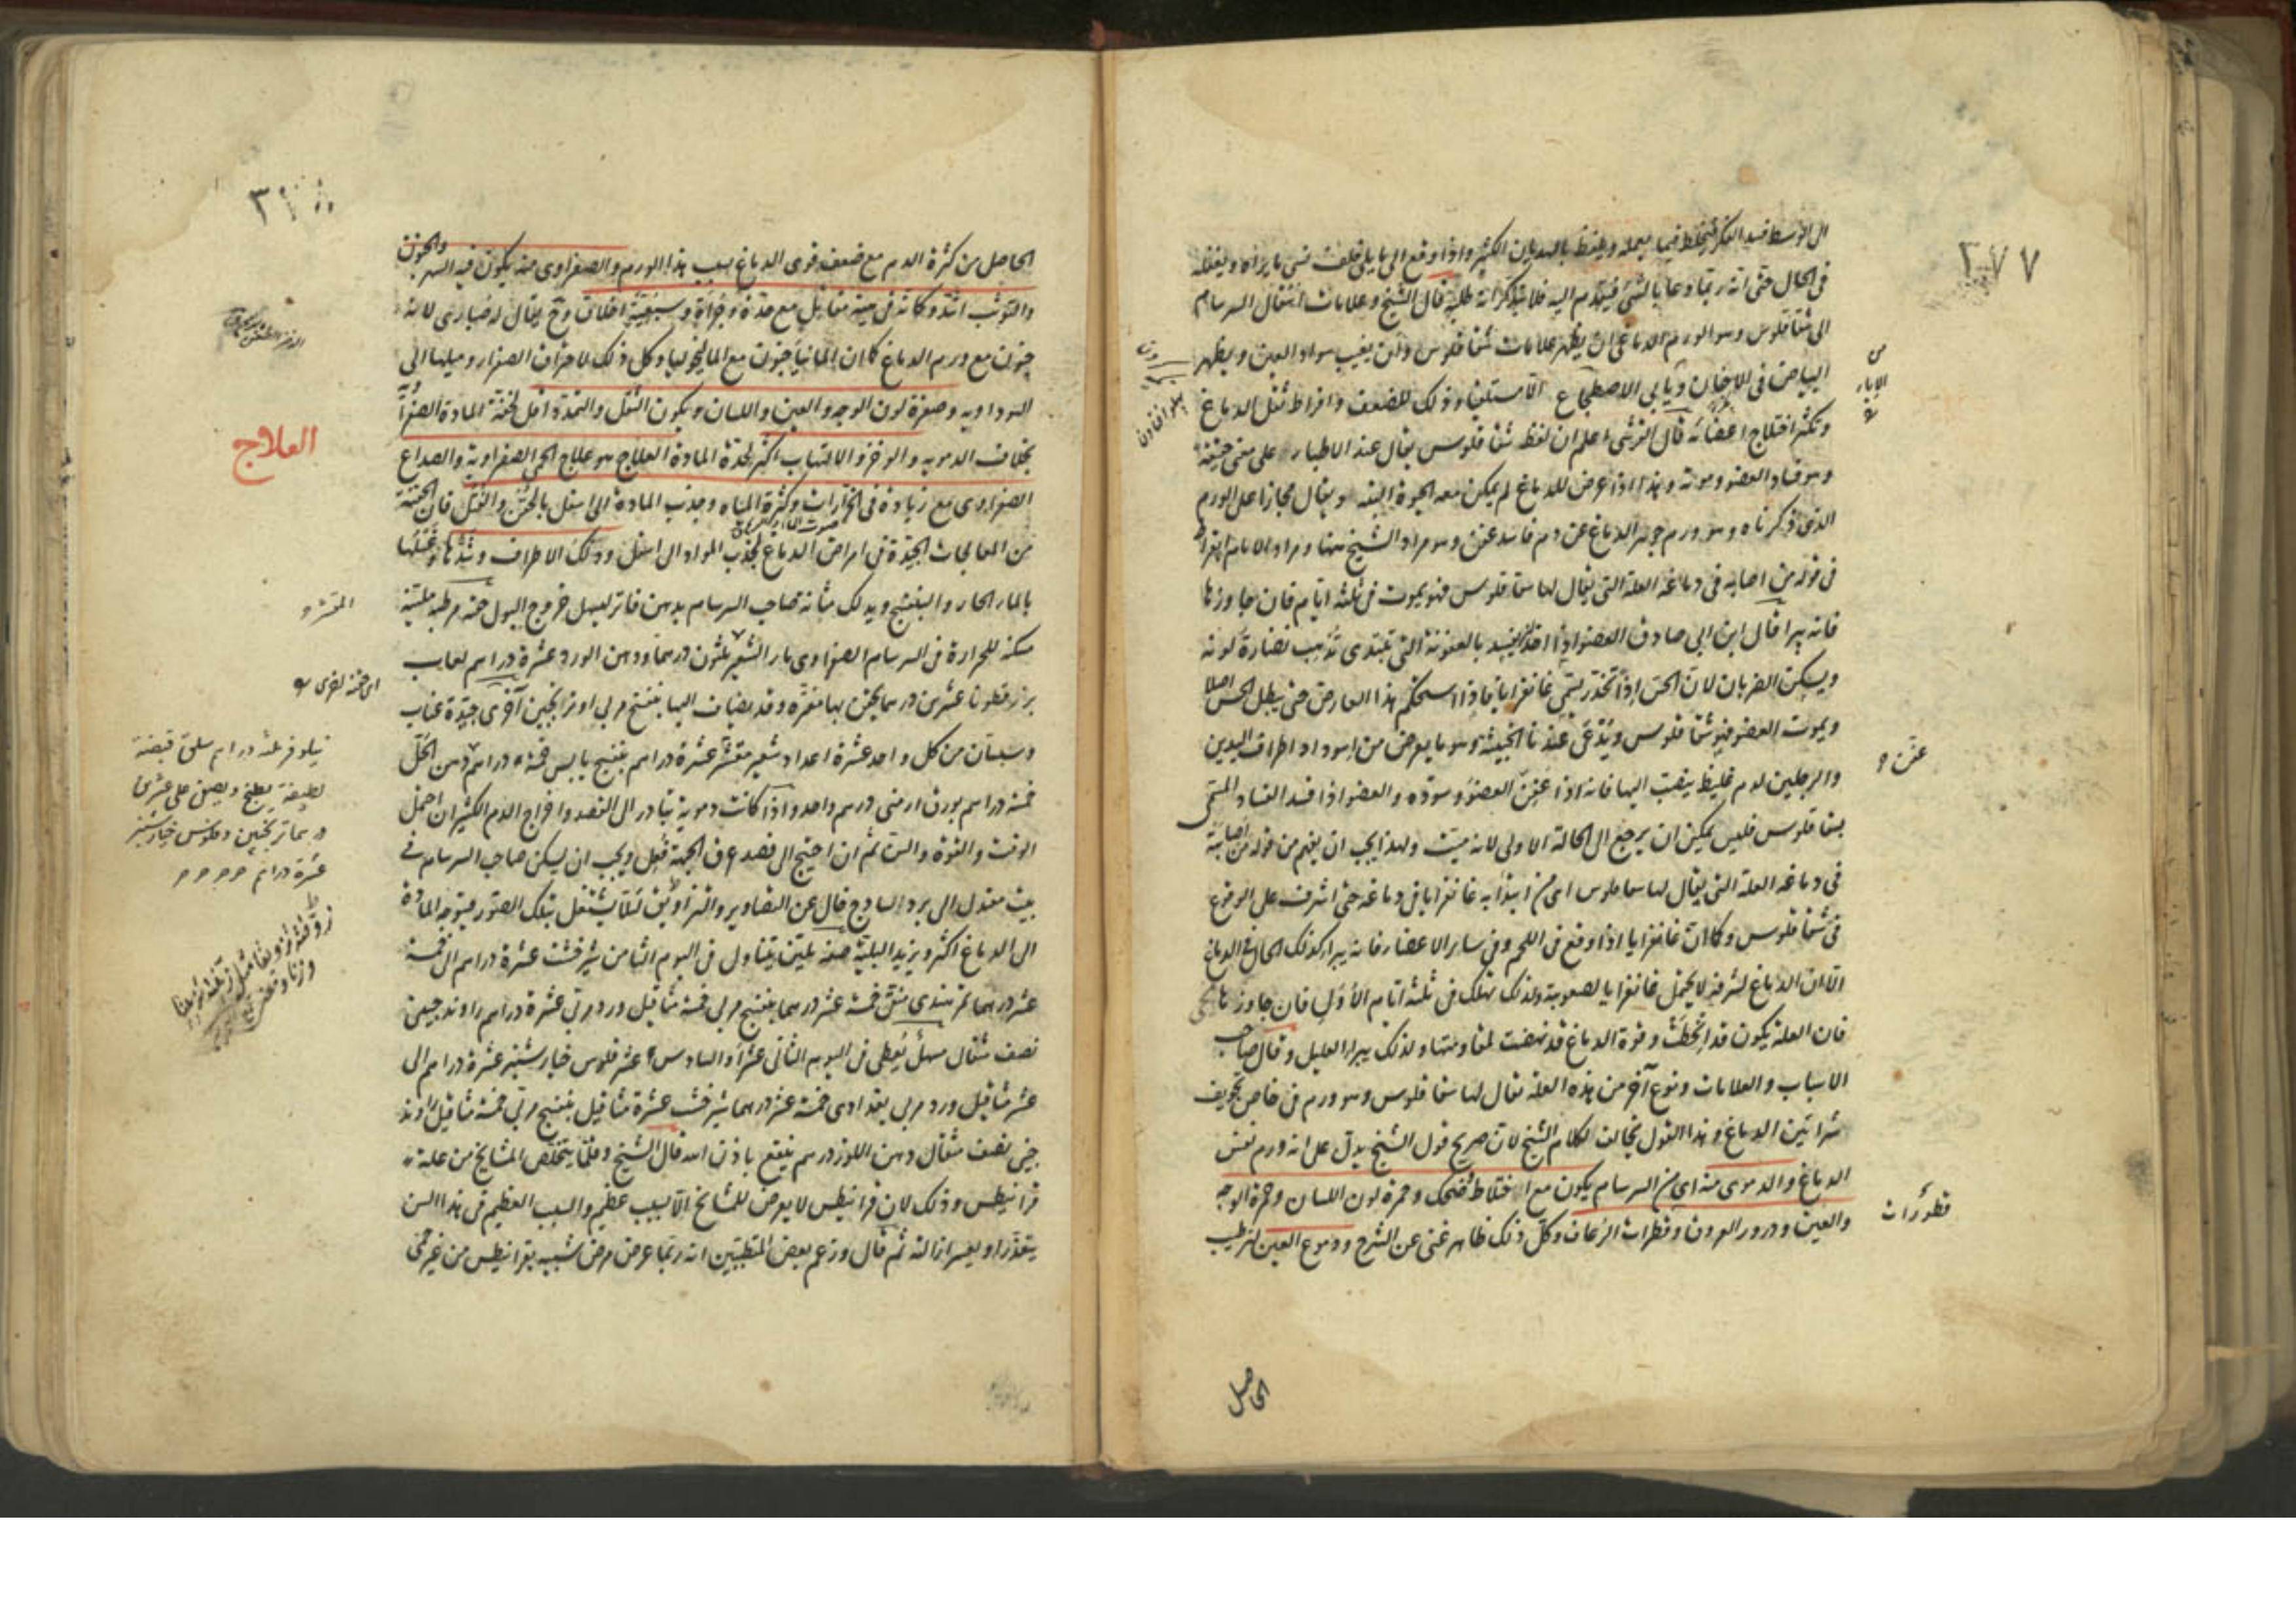 ٢٧٧
الى الاوسط فسد الفكر فيخلط فيما يعمله ويلفظ بالهذيان الكثير واذا وقع الى ما يلى خلف نسى ما يراه ويفعله
فى الحال حتى انه ربما دعا بالشى فيقدم اليه فلا يتذكر انه طلبه قال الشيخ وعلامات انتقال السرسام
الى شقاقلوس وهو الورم الدماغى ان يظهر علامات شقاقلوس وان يغيب سواد العين ويظهر
البياض فى الاحيان ويأبى الاضطجاع الا مستلقيا وذلك للضعف وافراط ثقل الدماغ
ويكثر اختلاج اعضائه قال القرشى اعلم ان لفظ شقاقلوس يقال عند الاطباء على معنى حقيقة
وهو فساد العضو وموته وهذا اذا عرض للدماغ لم يمكن معه الحيوة البتة ويقال مجازا على الورم
الذى ذكرناه وهو ورم جوهر الدماغ عن دم فاسد عفن وهو مراد الشيخ ههنا ومراد الامام ابقراط
فى قوله من اصابه فى دماغه العلة التى يقال لها سقاقلوس فهو يموت فى ثلثة ايام فان جاوزها
فانه يبرا قال ابن ابى صادق العضو اذا اخذ يفسد بالعفونة التى تبتدى تذهب نضارة لونه
ويسكن الضربان لان الحس اذا تخدر يسمى غانغرايا فاذا استحكم هذا العارض حتى يبطل الحس اصلا
ويموت العضو فهو شقاقلوس ويدعى عندنا الخبيثة وهو ما يعرض من اسوداد اطراف اليدين
والرجلين لدم غليظ ينصب اليها فانه اذا عفن العضو وسوده والعضو اذا فسد الفساد المسمى
بسقاقلوس فليس يمكن ان يرجع الى الحالة الاولى لانه ميت ولهذا يجب ان يفهم من قوله من اصابه
فى دماغه العلة التى يقال لها سقاقلوس اى من ابتدا به غانغرايا فى دماغه حتى اشرف على الوقوع
فى شقاقلوس وكما ان غانغرايا اذا وقع فى اللحم وفى ساير الاعضاء فانه يبرا كذلك الحال فى الدماغ
الا ان الدماغ لشرفه لا يحتمل غانغرايا لصعوبة ولذلك يهلك فى ثلثة ايام الأول فان جاوزها
فان العلة يكون قد انحطت وقوة الدماغ قد نهضت لمقاومتها ولذلك يبرا العليل وقال صاحب
الاسباب والعلامات ونوع آخر من هذه العلة يقال لها سقاقلوس وهو ورم فى خاص تجويف
شرائين الدماغ وهذا القول يخالف لكلام الشيخ لان صريح قول الشيخ يدل على انه ورم نفس
الدماغ والدموى منه اى من السرسام يكون مع اختلاط وضحك وحمرة لون اللسان وحمرة الوجه
والعين ودرور العروق وقطرات الرعاف وكل ذلك ظاهر غنى عن الشرح ودموع العين لترطيب
عفن
قطرات
الحاصل
الحاصل من كثرة الدم مع ضعف قوى الدماغ بسبب هذا الورم والصفراوى منه يكون فيه السهر والجنون
والتوثب اشد وكانه فى هيئة مقاتل مع حدة وجرأة وسبعية اخلاق وح يقال له صبارى لانه
جنون مع ورم الدماغ كما ان المانيا جنون مع الماليخوليا وكل ذلك لاحتراق الصفراء وميلها الى
السوداويه وصفرة لون الوجه والعين واللسان ويكون الثقل والتمدد اقل لخفة المادة الصفراوية
بخلاف الدمويه والوخز والالتهاب اكثر لحدة المادة العلاج هو علاج الحمى الصفراوية والصداع
العلاج
الصفراوى مع زيادة فى وكثرة المياه وجذب المادة الى اسفل بالحقن والفتل فان الحقنة
من المعالجات الجيدة فى امراض الدماغ لجذب المواد الى اسفل ودلك الاطراف وشدها وغسلها
بالماء الحار والبنفسج ويدلك مثانة صاحب السرسام بدهن فاتر ليسهل خروج البول حقنة مرطبة ملينة
مسكنة للحرارة فى السرسام الصفراوى ماء الشعير ثلثون درهما ودهن الورد عشرة دراهم لعاب
بزر قطونا عشرين درهما يحقن بها مفترة وقد يضاف اليها بنفسج مربى او ترنجبين آخرى جيدة عناب
وسبستان من كل واحد عشرة اعداد شعير مقشر عشرة دراهم بنفسج يابس خمسة دراهم دهن الخل
خمسة دراهم بورق ارمنى درهم واحد واذا كانت دموية تبادر الى الفصد واخراج الدم الكثير ان احتمل
الوقت والقوة والسن ثم ان احتيج الى فصد عرق الجبهة فعل ويجب ان يسكن صاحب السرسام فى
بيت معتدل الى برد الساذج خال عن التصاوير والتزاويق لئلا يشتغل بتلك الصور فيتوجه المادة
الى الدماغ اكثر ويزيد البلية صفة تليين يتناول فى اليوم الثامن شيرخشت عشرة دراهم الى خمسة
عشر درهما تمر هندى منقى خمسة عشر درهما بنفسج مربى خمسة مثاقيل ورد مربى عشرة دراهم راوند جيمى
نصف مثقال مسهل يعطى فى اليوم الثانى عشر او السادس عشر فلوس خيارشنبر عشرة دراهم الى
عشر مثاقيل ورد مربى بغدادى خمسة عشر درهما شيرخشت عشرة مثاقيل بنفسج مربى خمسة مثاقيل راوند
جينى نصف مثقال دهن اللوز درهم ينفع باذن الله قال الشيخ وقلما يتخلص المشايخ من علة
قرانيطس وذلك لان قرانيطس لا يعرض للمشايخ الا لسبب عظيم والسبب العظيم فى هذا السن
يتعذر او يعسر ازالته ثم قال وزعم بعض المتطببين انه ربما عرض مرض شبيه بقرانيطس من غير حمى
المقشر
نيلوفر ثلثة دراهم سلق قبضة
لطيفة يطبخ ويصفى على عشرين
درهما ترنجبين وفلوس خيارشنبر
عشرة دراهم